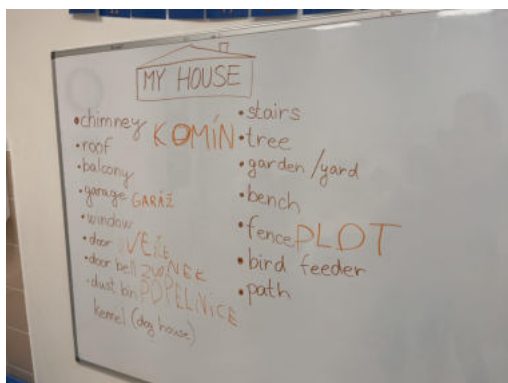 MY HOUSE
•chimney KOMÍN
•roof
•balcony
•garage GARÁŽ
•window
•door DVEŘE
•door bell ZVONEK
•dust bin POPELNICE
kennel (dog house)
•stairs
•tree
•garden/yard
•bench
•fence PLOT
•bird feeder
•path